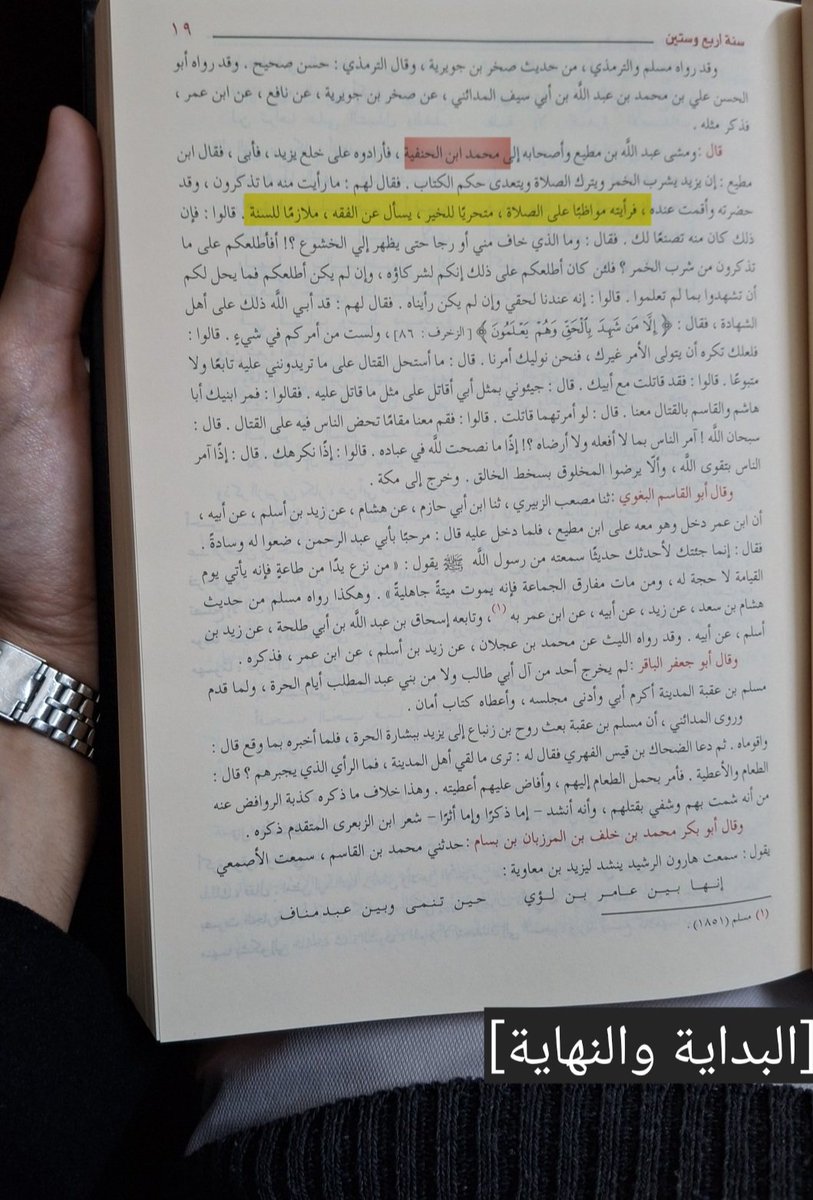 سنة أربع وستين ١٩
وقد رواه مسلم والترمذي ، من حديث صخر بن جويرية ، وقال الترمذي : حسن صحيح . وقد رواه أبو
الحسن علي بن محمد بن عبد اللَّه بن أبي سيف المدائني ، عن صخر بن جويرية ، عن نافع ، عن ابن عمر ،
فذكر مثله .
قال : ومشى عبد اللَّه بن مطيع وأصحابه إلى محمد ابن الحنفية ، فأرادوه على خلع يزيد ، فأبى ، فقال ابن
مطيع : إن يزيد يشرب الخمر ويترك الصلاة ويتعدى حكم الكتاب . فقال لهم : ما رأيت منه ما تذكرون ، وقد
حضرته وأقمت عنده ، فرأيته مواظبًا على الصلاة ، متحريًا للخير ، يسأل عن الفقه ، ملازمًا للسنة . قالوا : فإن
ذلك كان منه تصنعًا لك . فقال : وما الذي خاف مني أو رجا حتى يظهر إلي الخشوع ؟! أفأطلعكم على ما
تذكرون من شرب الخمر ؟ فلئن كان أطلعكم على ذلك إنكم لشركاؤه ، وإن لم يكن أطلعكم فما يحل لكم
أن تشهدوا بما لم تعلموا . قالوا : إنه عندنا لحقي وإن لم يكن رأيناه . فقال لهم : قد أبي اللَّه ذلك على أهل
الشهادة ، فقال : ﴿ إِلَّا مَن شَهِدَ بِالْحَقِّ وَهُمْ يَعْلَمُونَ ﴾ [ الزخرف : ٨٦] ، ولست من أمركم في شيءٍ . قالوا :
فلعلك تكره أن يتولى الأمر غيرك ، فنحن نوليك أمرنا . قال : ما أستحل القتال على ما تريدونني عليه تابعًا ولا
متبوعًا . قالوا : فقد قاتلت مع أبيك . قال : جيئوني بمثل أبي أقاتل على مثل ما قاتل عليه . فقالوا : فمر ابنيك أبا
هاشم والقاسم بالقتال معنا . قال : لو أمرتهما قاتلت . قالوا : فقم معنا مقامًا تحض الناس فيه على القتال . قال :
سبحان اللَّه ! آمر الناس بما لا أفعله ولا أرضاه ؟! إذًا ما نصحت للَّه في عباده . قالوا : إذًا نكرهك . قال : إذًا آمر
الناس بتقوى اللَّه ، وألّا يرضوا المخلوق بسخط الخالق . وخرج إلى مكة .
وقال أبو القاسم البغوي : ثنا مصعب الزبيري ، ثنا ابن أبي حازم ، عن هشام ، عن زيد بن أسلم ، عن أبيه ،
أن ابن عمر دخل وهو معه على ابن مطيع ، فلما دخل عليه قال : مرحبًا بأبي عبد الرحمن ، ضعوا له وسادةً .
فقال : إنما جئتك لأحدثك حديثًا سمعته من رسول اللَّه ﷺ يقول : « من نزع يدًا من طاعةٍ فإنه يأتي يوم
القيامة لا حجة له ، ومن مات مفارق الجماعة فإنه يموت ميتةً جاهليةً » . وهكذا رواه مسلم من حديث
هشام بن سعد ، عن زيد ، عن أبيه ، عن ابن عمر به (١) ، وتابعه إسحاق بن عبد اللَّه بن أبي طلحة ، عن زيد بن
أسلم ، عن أبيه . وقد رواه الليث عن محمد بن عجلان ، عن زيد بن أسلم ، عن ابن عمر ، فذكره .
وقال أبو جعفر الباقر : لم يخرج أحد من آل أبي طالب ولا من بني عبد المطلب أيام الحرة ، ولما قدم
مسلم بن عقبة المدينة أكرم أبي وأدنى مجلسه ، وأعطاه كتاب أمان .
وروى المدائني ، أن مسلم بن عقبة بعث روح بن زنباع إلى يزيد ببشارة الحرة ، فلما أخبره بما وقع قال :
واقوماه . ثم دعا الضحاك بن قيس الفهري فقال له : ترى ما لقي أهل المدينة ، فما الرأي الذي يجبرهم ؟ قال :
الطعام والأعطية . فأمر بحمل الطعام إليهم ، وأفاض عليهم أعطيته . وهذا خلاف ما ذكره كذبة الروافض عنه
من أنه شمت بهم وشفي بقتلهم ، وأنه أنشد – إما ذكرًا وإما أثرًا – شعر ابن الزبعرى المتقدم ذكره .
وقال أبو بكر محمد بن خلف بن المرزبان بن بسام : حدثني محمد بن القاسم ، سمعت الأصمعي
يقول : سمعت هارون الرشيد ينشد ليزيد بن معاوية :
إنها بين عامر بن لؤي حين تنمى وبين عبد مناف
(١) مسلم (١٨٥١) .
[البداية والنهاية]